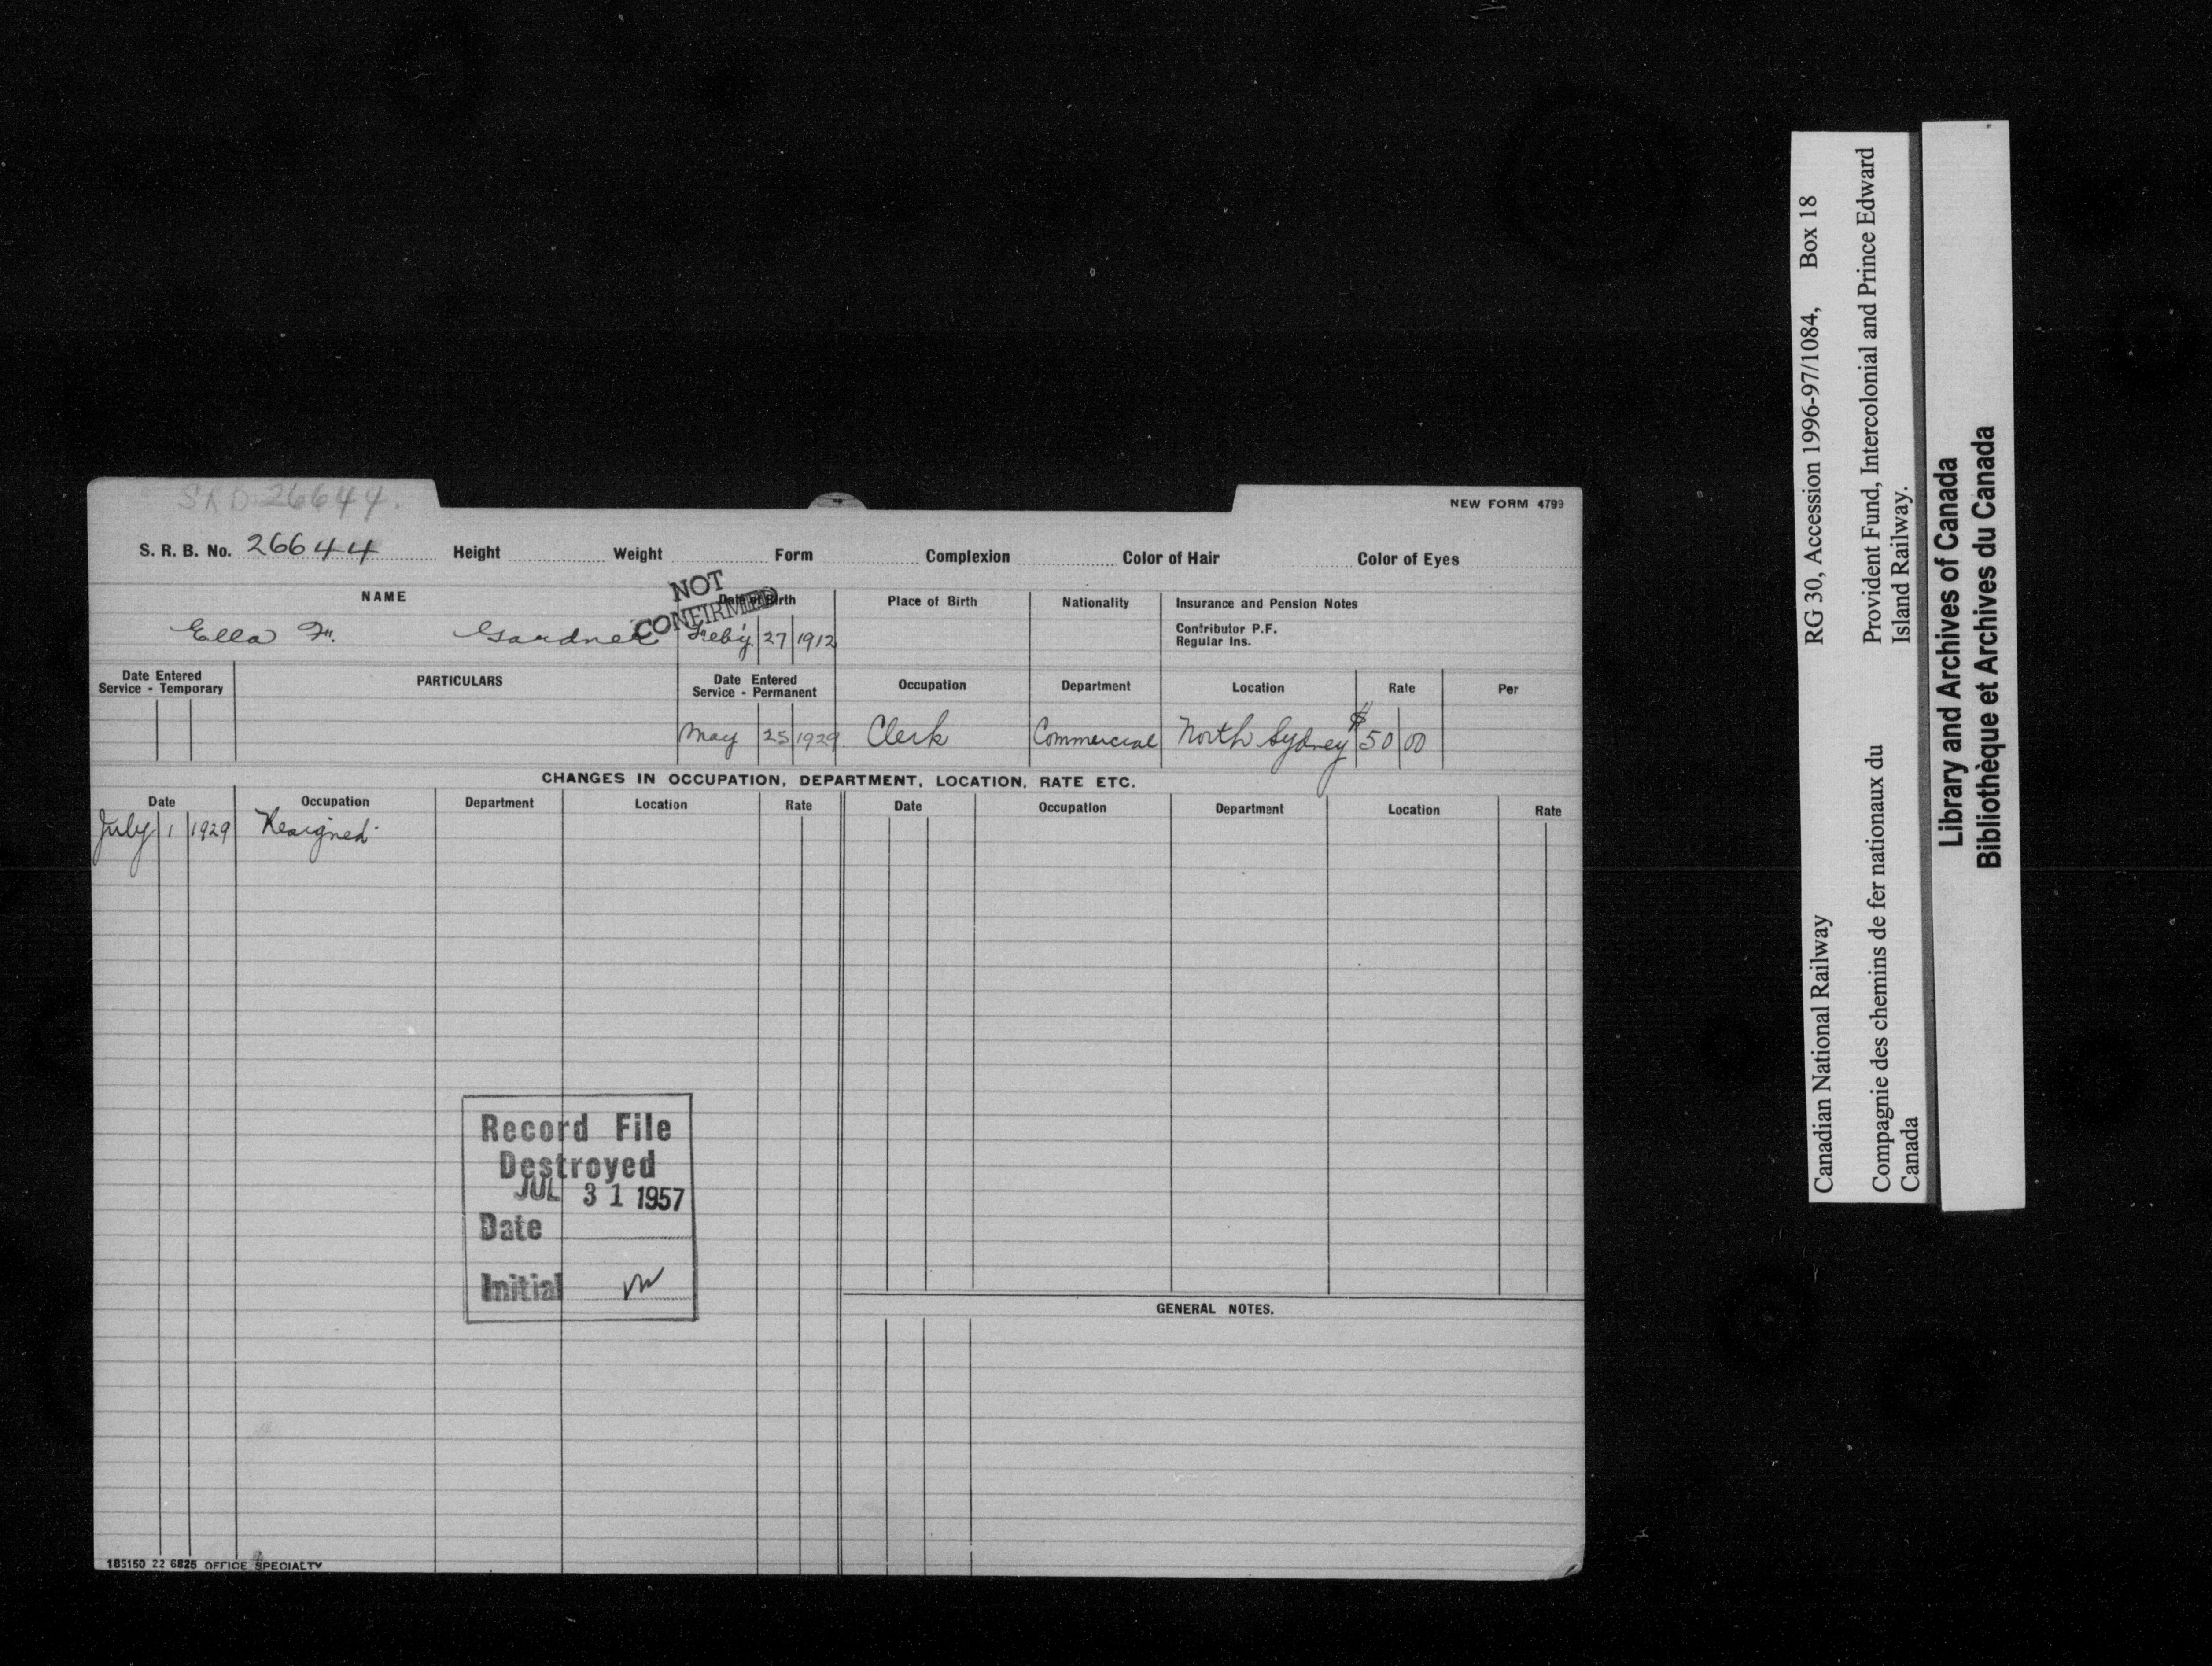 SRB 26644.
NEW FORM 4799
S. R. B. No. 26644 Height Weight Form Complexion Color of Hair Color of Eyes
NOT CONFIRMED
NAME Date of Birth Place of Birth Nationality Insurance and Pension Notes
Contributor P.F.
Regular Ins.
Ella F. Gardner Feb'y 27 1912
Date Entered Service - Temporary PARTICULARS Date Entered Service - Permanent Occupation Department Location Rate Per
May 25 1929 Clerk Commercial North Sydney $50 00
CHANGES IN OCCUPATION, DEPARTMENT, LOCATION, RATE ETC.
Date Occupation Department Location Rate Date Occupation Department Location Rate
July 1 1929 Resigned
Record File
Destroyed
JUL 31 1957
Date
Initial
GENERAL NOTES.
185150 22 6825 OFFICE SPECIALTY
Canadian National Railway RG 30, Accession 1996-97/1084, Box 18
Compagnie des chemins de fer nationaux du Provident Fund, Intercolonial and Prince Edward
Canada Island Railway.
Library and Archives of Canada
Bibliothèque et Archives du Canada